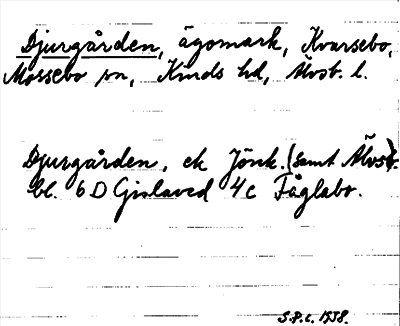 Djurgården, ägomark, Kvarsebo,
Mossebo sn, Kinds hd, Älvsb. l.
Djurgården, ek Jönk. (samt Älvsb).
bl. 6 D Gislaved 4c Fåglabo.
S.P.C. 1958.